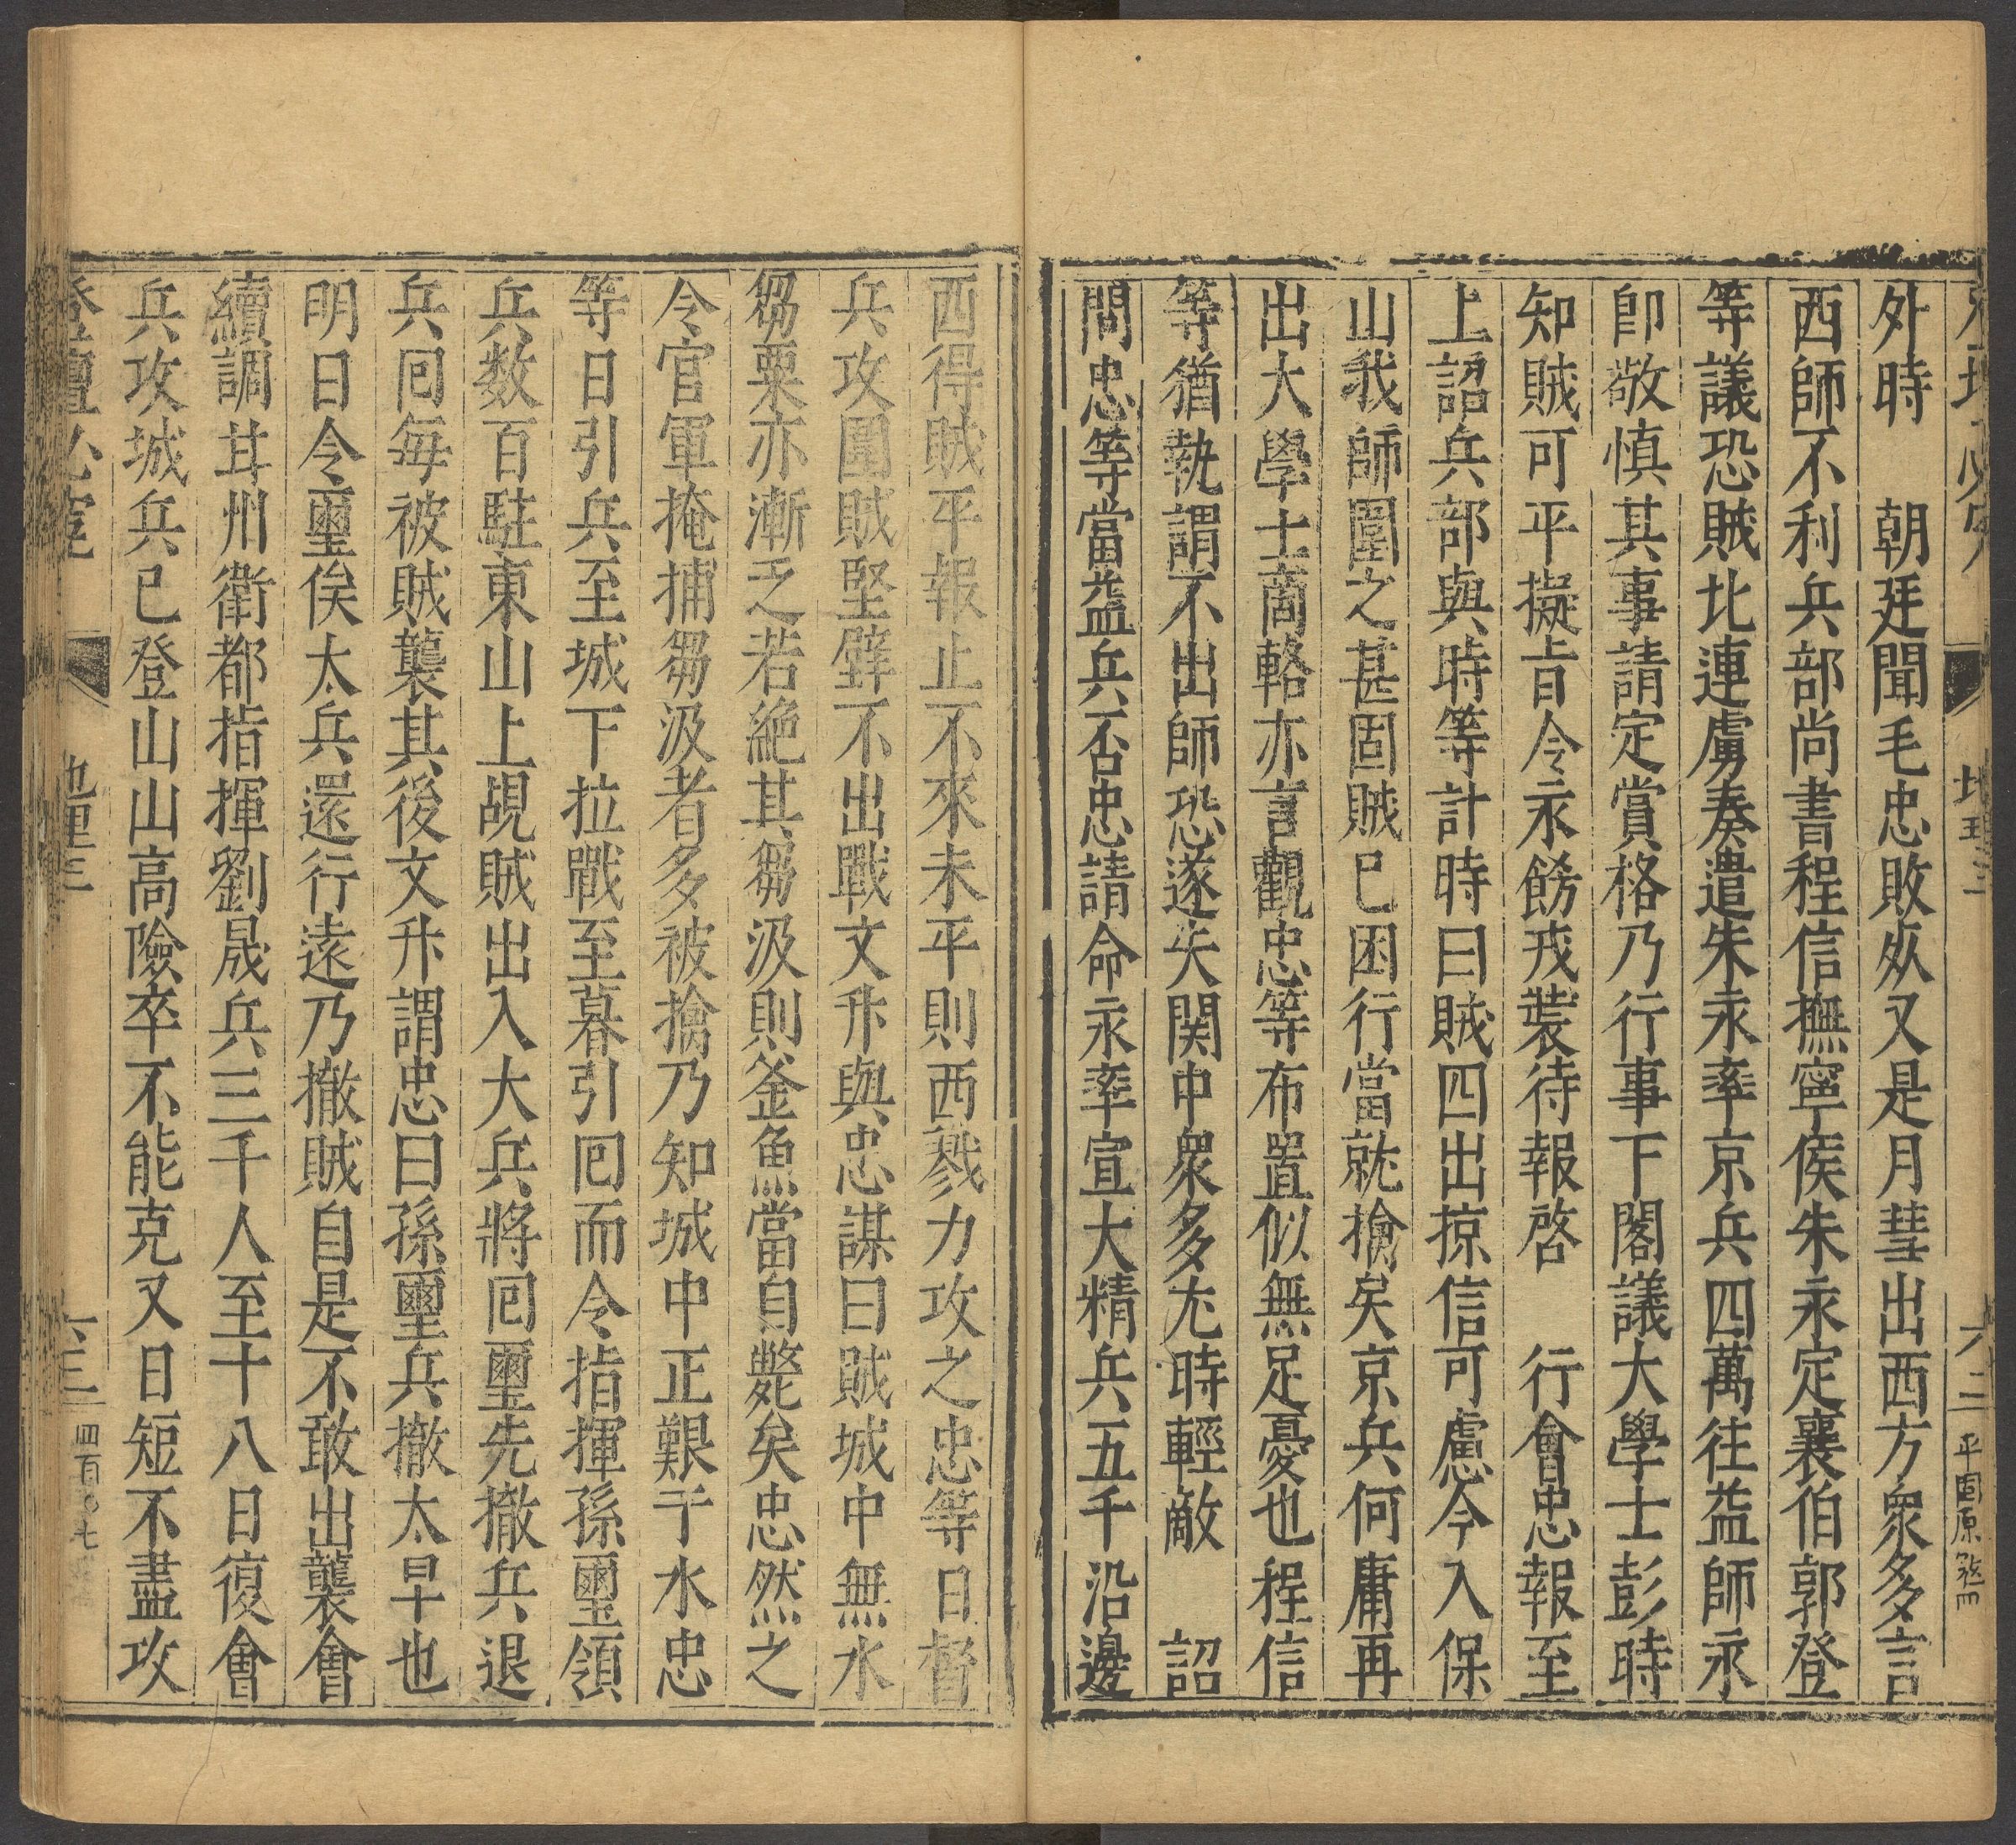 外時　朝廷聞毛忠敗歿又是月彗出西方衆多言
西師不利兵部尚書程信撫寧侯朱永定襄伯郭登
等議恐賊北連虜奏遣朱永率京兵四萬往益師永
卽敬慎其事請定賞格乃行事下閣議大學士彭時
知賊可平擬旨令永飭戎裝待報啓　行會忠報至
上詔兵部與時等計時曰賊四出掠信可慮今入保
山我師圍之甚固賊已困行當就擒矣京兵何庸再
出大學士商輅亦言觀忠等布置似無足憂也程信
等猶執謂不出師恐遂失関中衆多尤時輕敵　詔
問忠等當益兵否忠請命永率宣大精兵五千沿邊
西得賊平報止不來未平則西戮力攻之忠等日督
兵攻圍賊堅壁不出戰文升與忠謀曰賊城中無水
芻粟亦漸乏若絕其芻汲則釜魚當自斃矣忠然之
令官軍掩捕芻汲者多被擒乃知城中正艱于水忠
等日引兵至城下拉戰至暮引囘而令指揮孫璽領
兵数百駐東山上覘賊出入大兵將囘璽先撤兵退
兵囘每被賊襲其後文升謂忠曰孫璽兵撤太早也
明日令璽俟太兵還行遠乃撤賊自是不敢出襲會
續調甘州衛都指揮劉晟兵三千人至十八日復會
兵攻城兵已登山山高險卒不能克又日短不盡攻
登壇必究　地理三　六三　四百〇七